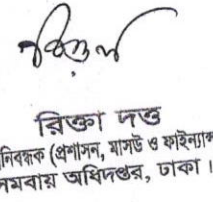 রিক্তা দত্ত
নিবন্ধক (প্রশাসন, মাসউ ও ফাইন্যান্স
সমবায় অধিদপ্তর, ঢাকা।